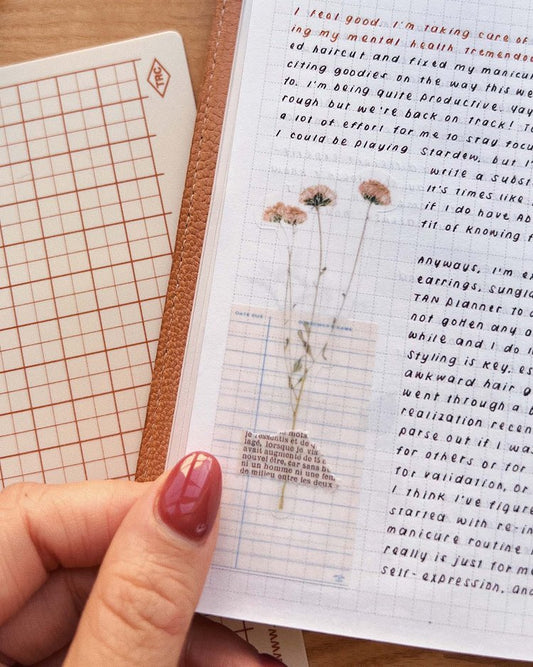 TRC
I feel good. I'm taking care of
ing my mental health tremendou
ed haircut and fixed my manicur
citing goodies on the way this we
to. I'm being quite productive. Yay
rough but we're back on track! T
a lot of effort for me to stay focu
I could be playing Stardew, but I'
write a subst
It's times like
if I do have AD
fit of knowing
Anyways, I'm e
earrings, sungla
TAN planner to
not gotten any o
while and I do
styling is key, es
awkward hair g
went through a b
realization recen
parse out if I wa
for others or for
for validation, or
I think I've figure
started with re-in
manicure routine
really is just for me
self-expression, and
DATE DUE
NAME
mois
je ressentis et de
lagé, lorsque je vis
avait augmenté de 15
nouvel être, car sans
ni un homme ni une fem
de milieu entre les deux